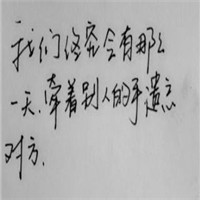 我们终究会有那么
一天.牵着别人的手遗忘
对方.